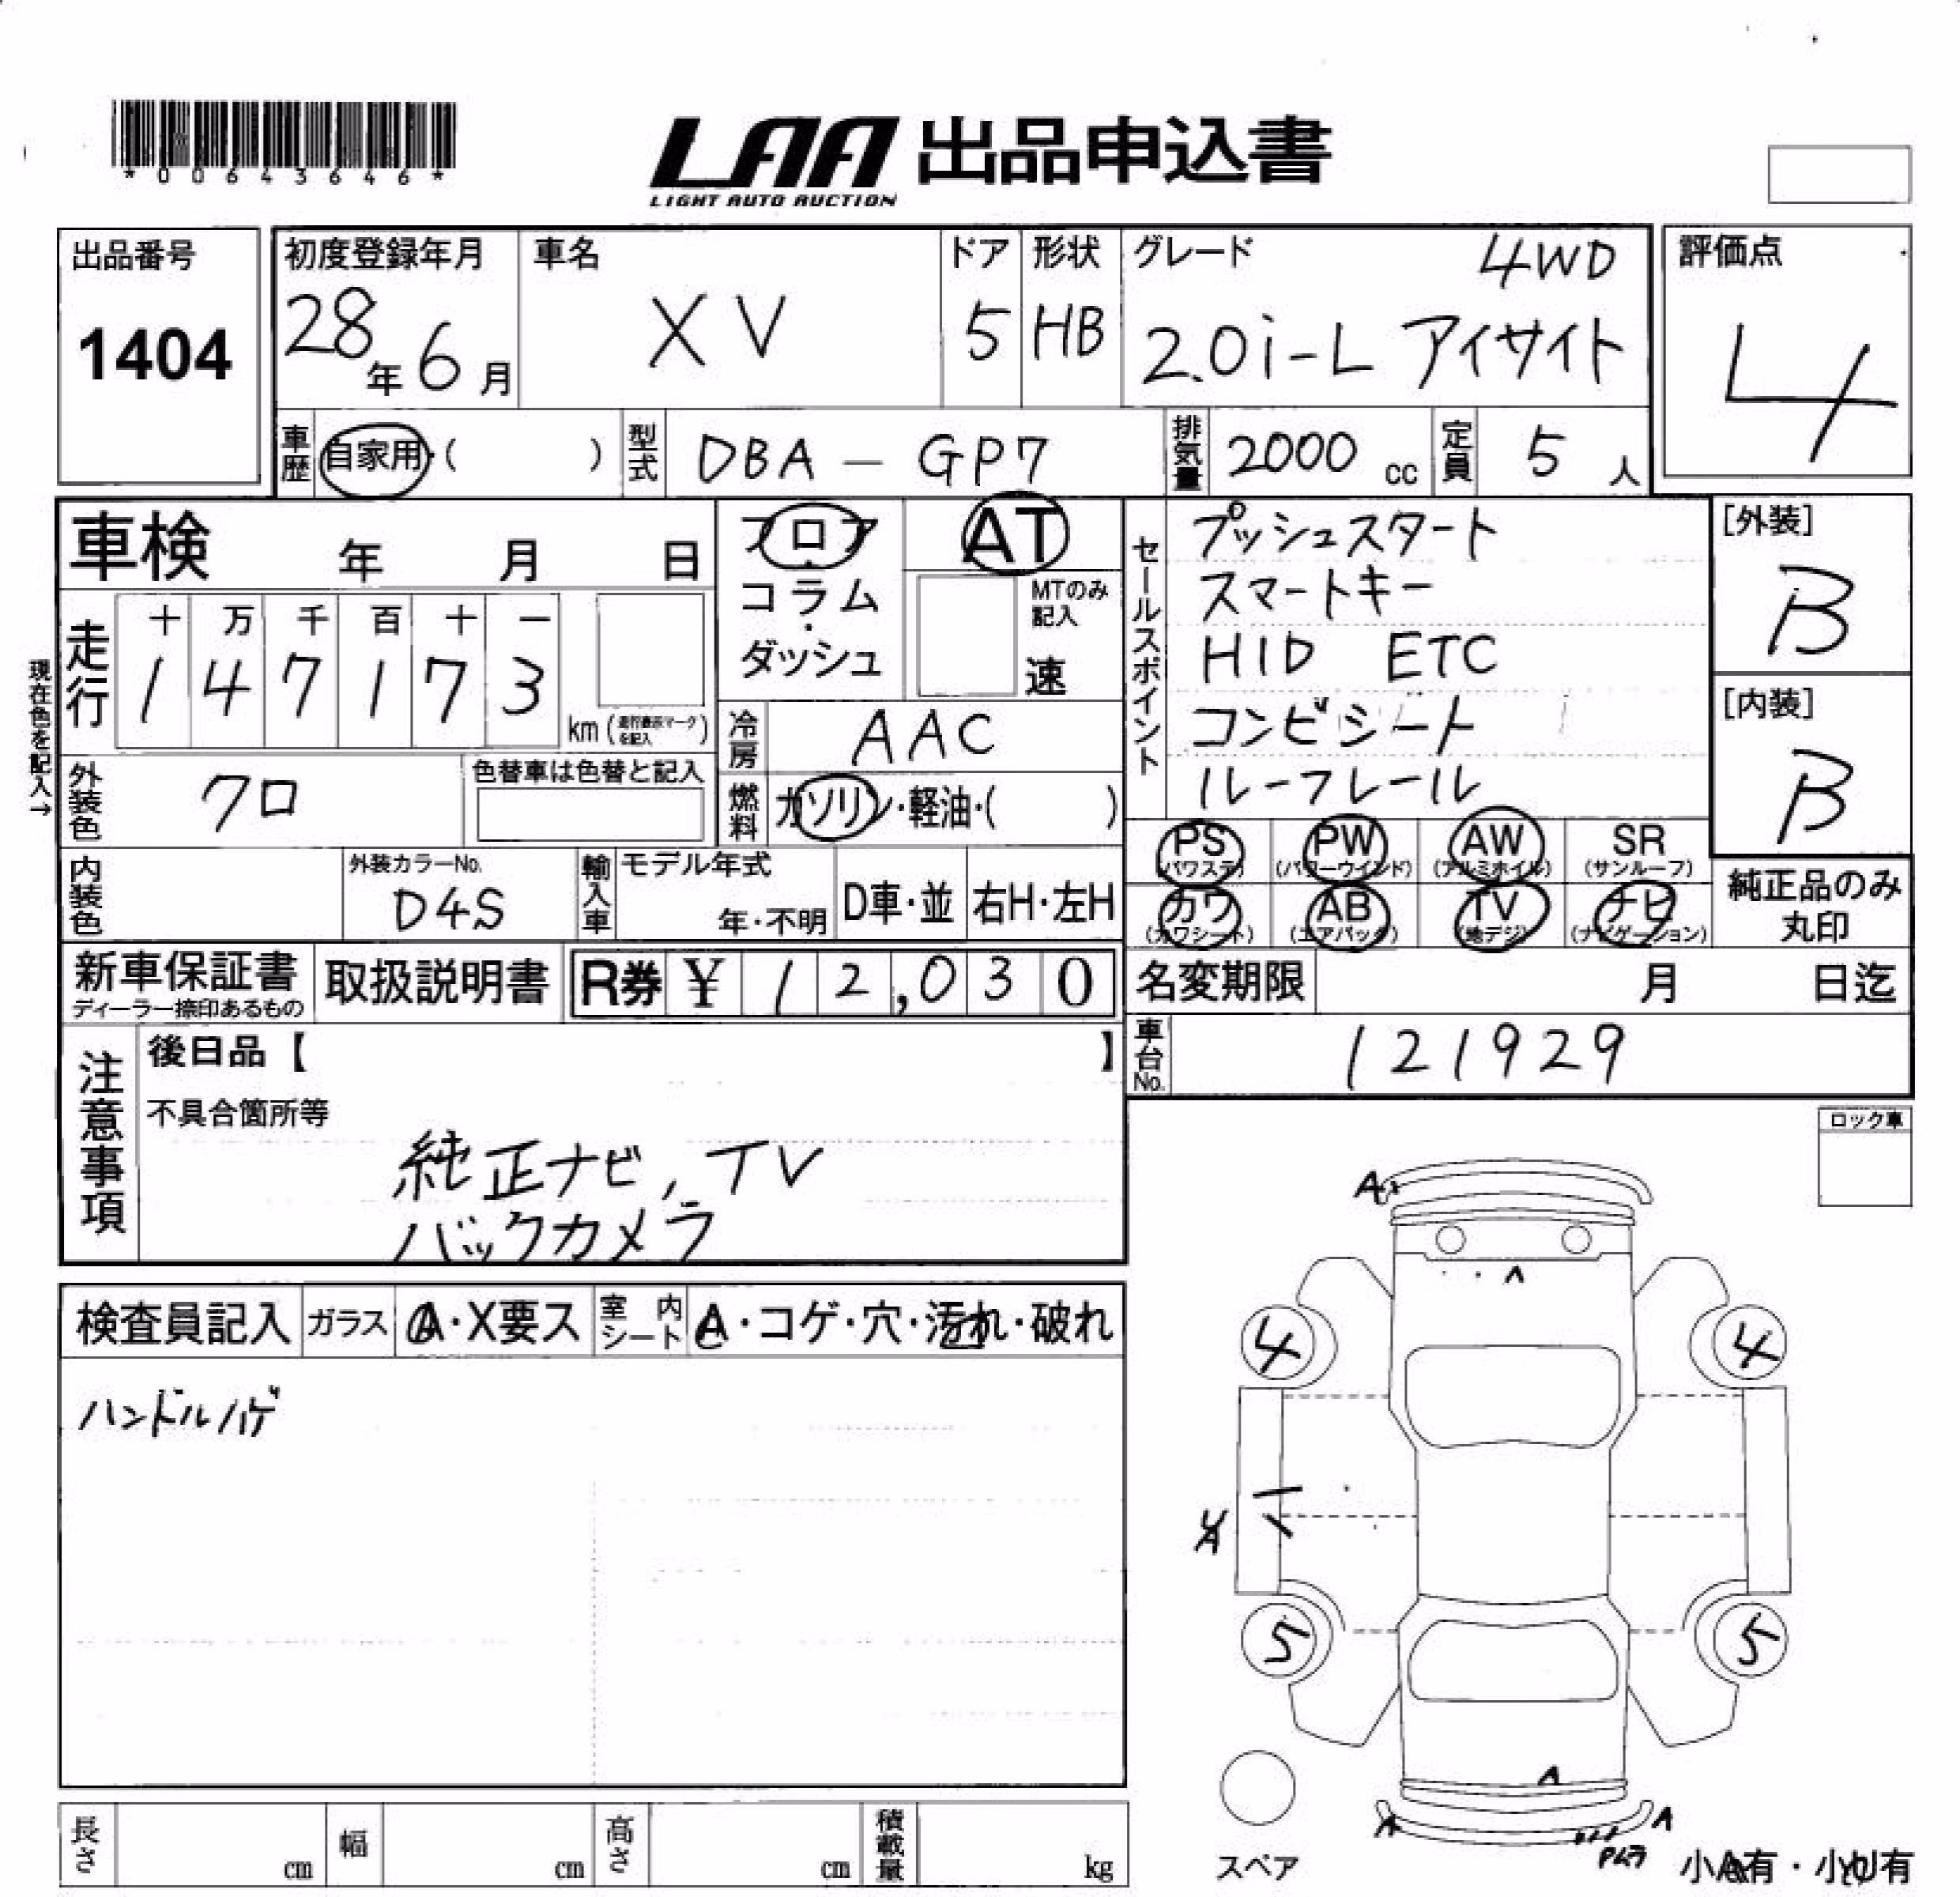 *00643646*
LAA 出品申込書
LIGHT AUTO AUCTION
出品番号
1404
初度登録年月
28年6月
車名
XV
ドア
5
形状
HB
グレード
4WD
2.0i-L アイサイト
評価点
4
車歴
自家用・( )
型式
DBA-GP7
排気量
2000 cc
定員
5 人
車検 年 月 日
フロア
・
コラム
・
ダッシュ
AT
MTのみ記入
速
セールスポイント
プッシュスタート
スマートキー
HID ETC
コンビシート
ルーフレール
[外装]
B
[内装]
B
現在色を記入→
走行
十 万 千 百 十 一
1 4 7 1 7 3
km (走行表示マークを記入)
冷房
AAC
燃料
ガソリン・軽油・( )
外装色
クロ
色替車は色替と記入
内装色
外装カラーNo.
D4S
輸入車
モデル年式
年・不明
D車・並
右H・左H
PS (パワステ)
PW (パワーウインド)
AW (アルミホイル)
SR (サンルーフ)
カワ (カワシート)
AB (エアバック)
TV (地デジ)
ナビ (ナビゲーション)
純正品のみ
丸印
新車保証書
ディーラー捺印あるもの
取扱説明書
R券 ¥ 12,030
名変期限 月 日迄
車台No.
121929
注意事項
後日品【 】
不具合箇所等
純正ナビ, TV
バックカメラ
ロック車
検査員記入
ガラス
A・X要ス
室内シート
A・コゲ・穴・汚れ・破れ
ハンドルハゲ
A
A
4
4
5
5
A
A
A
スペア
小A有・小U有
長さ cm
幅 cm
高さ cm
積載量 kg